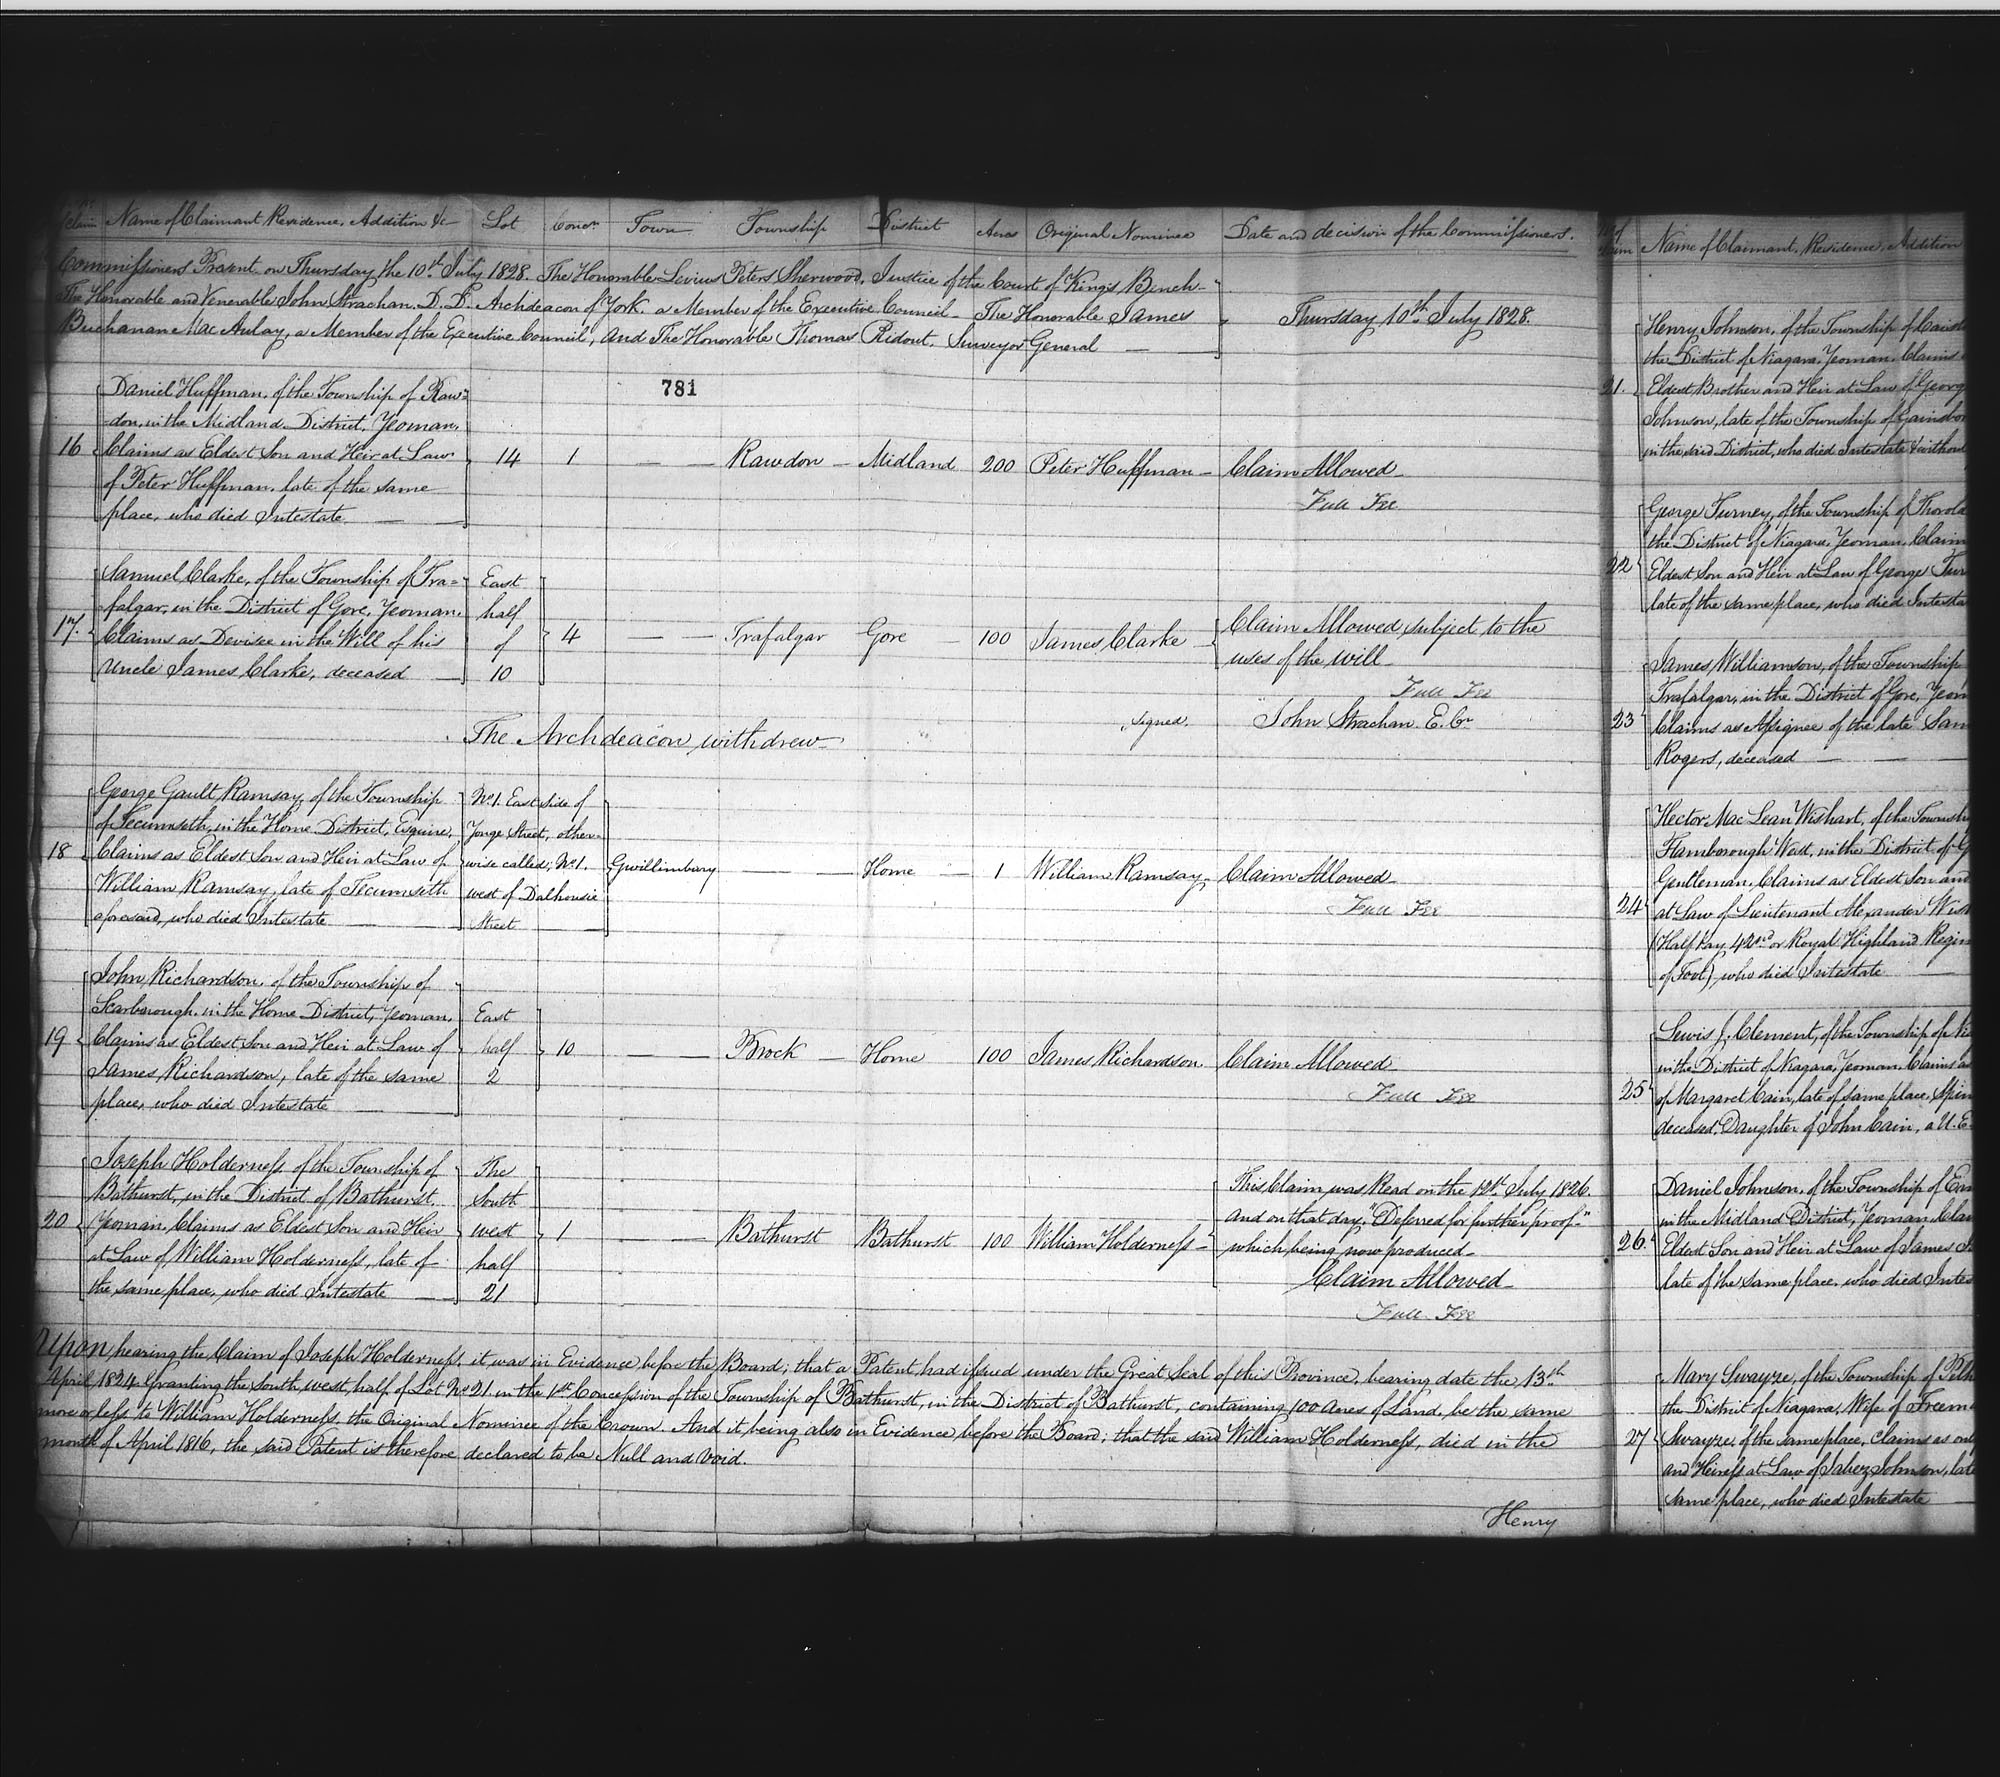 Claim Name of Claimant Residence, Addition &c Lot Concn. Town Township District Acres Original Nominee Date and decision of the Commissioners.
Commissioners Present on Thursday the 10th July 1828. The Honorable Levius Peters Sherwood, Justice of the Court of Kings Bench
The Honorable and Venerable John Strachan, D.D. Archdeacon of York, a Member of the Executive Council - The Honorable James
Buchanan Mac Aulay, a Member of the Executive Council, and The Honorable Thomas Ridout, Surveyor General
Thursday 10th July 1828.
781
Daniel Huffman, of the Township of Raw=
don, in the Midland District, Yeoman,
16 Claims as Eldest Son and Heir at Law 14 1 Rawdon Midland 200 Peter Huffman Claim Allowed
of Peter Huffman, late of the same
Full Fee
place, who died Intestate
Samuel Clarke, of the Township of Tra= East
falgar, in the District of Gore, Yeoman, half
17. Claims as Devisee in the Will of his of 4 Trafalgar Gore 100 James Clarke Claim Allowed subject to the
Uncle James Clarke, deceased 10 uses of the will
Full Fee
signed. John Strachan E.Cr
The Archdeacon withdrew
George Gault Ramsay, of the Township No 1. East side of
of Tecumseth, in the Home District, Esquire, Yonge Street, other-
18 Claims as Eldest Son and Heir at Law of wise called; No 1. Gwillimbury Home 1 William Ramsay Claim Allowed
William Ramsay, late of Tecumseth west of Dalhousie
Full Fee
aforesaid, who died Intestate Street
John Richardson, of the Township of
Scarborough, in the Home District, Yeoman, East
19 Claims as Eldest Son and Heir at Law of half 10 Brock Home 100 James Richardson Claim Allowed
James Richardson, late of the same 2
Full Fee
place, who died Intestate
Joseph Holderness, of the Township of The This Claim was Read on the 12th July 1826.
Bathurst, in the District of Bathurst, South and on that day, "Deferred for further proof"
20 Yeoman, Claims as Eldest Son and Heir west 1 Bathurst Bathurst 100 William Holderness which being now produced
at Law of William Holderness, late of half Claim Allowed
the same place, who died Intestate 21
Full Fee
Upon hearing the Claim of Joseph Holderness, it was in Evidence before the Board; that a Patent had issued under the Great Seal of this Province, bearing date the 13th
April 1824 Granting the South west half of Lot No 21 in the 1st Concession of the Township of Bathurst, in the District of Bathurst, containing 100 acres of Land, be the same
more or less, to William Holderness, the Original Nominee of the Crown. And it being also in Evidence before the Board; that the said William Holderness, died in the
month of April 1816, the said Patent is therefore declared to be Null and void.
Henry
Name of Claimant, Residence, Addition
Henry Johnson, of the Township of
the District of Niagara, Yeoman, Claims
21. Eldest Brother and Heir at Law of Georg
Johnson, late of the Township of
in the said District, who died Intestate & without
George Turney, of the Township of Thorold
the District of Niagara, Yeoman, Claim
22 Eldest Son and Heir at Law of George Tur
late of the same place, who died Intesta
James Williamson, of the Township
Trafalgar, in the District of Gore, Yeom
23 Claims as Assignee of the late Sam
Rogers, deceased
Hector Mac Lean Wishart, of the Townsh
Flamborough West, in the District of G
Gentleman, Claims as Eldest Son and
24 at Law of Lieutenant Alexander Wish
(Half Pay 42nd or Royal Highland Regim
of Foot) who died Intestate
Lewis J. Clement, of the Township of Ni
in the District of Niagara, Yeoman, Claims as
25 of Margaret Cain, late of same place, Spin
deceased, Daughter of John Cain, a U.E.
Daniel Johnson, of the Township of Ern
in the Midland District, Yeoman, Clai
26. Eldest Son and Heir at Law of James J
late of the same place, who died Intes
Mary Swayze, of the Township of Pelh
the District of Niagara, Wife of Freem
27 Swayze, of the same place, Claims as onl
and Heiress at Law of Jabez Johnson, late
same place, who died Intestate